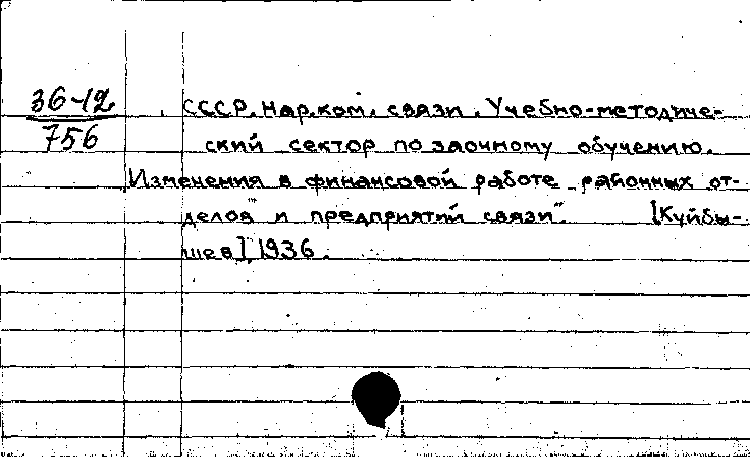 36-12
756
СССР. Нар.ком. связи. Учебно-методиче-
ский сектор по заочному обучению.
Изменения в финансовой работе районных от-
делов" и предприятий связи". [Куйбы-
шев], 1936.